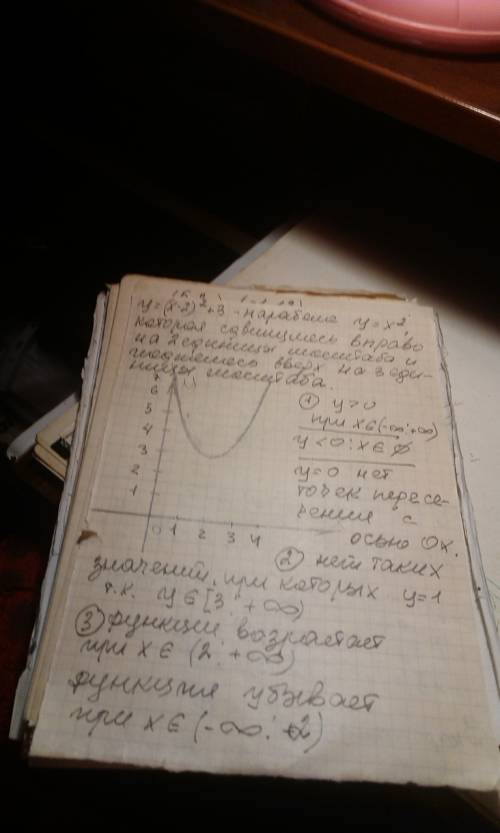 y=(x-2)²+3 - парабола y=x²,
которая сдвинулась вправо
на 2 единицы масштаба и
поднялась вверх на 3 еди-
ницы масштаба.
7
6
5
4
3
2
1
0 1 2 3 4
① y>0
при x∈(-∞;+∞)
y<0: x∈∅
y=0 нет
точек пересе-
чения с
осью Ox.
② нет таких
значений, при которых y=1
т.к. y∈[3;+∞)
③ функция возрастает
при x∈(2;+∞)
функция убывает
при x∈(-∞;2)